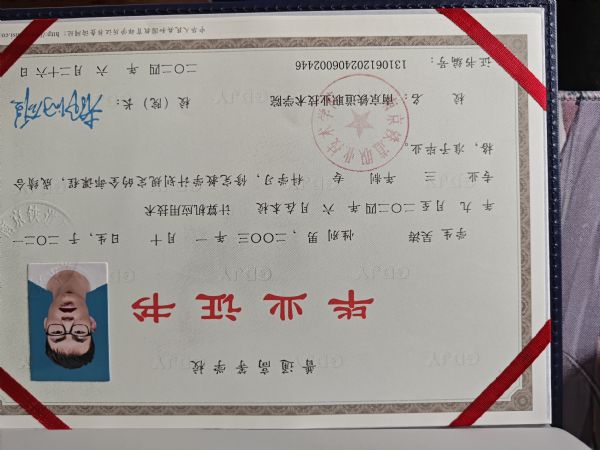 普通高等学校
毕业证书
学生 吴涛 性别 男，二〇〇三年 一 月 十 日生，于 二〇二一
年 九 月至二〇二四年 六 月在本校 计算机应用技术
专业 三 年制 专 科学习，修完教学计划规定的全部课程，成绩合
格，准予毕业。
校 名：南京铁道职业技术学院 校（院）长：
证书编号：131061202406002446 二〇二四年 六 月二十六日
南京铁道职业技术学院